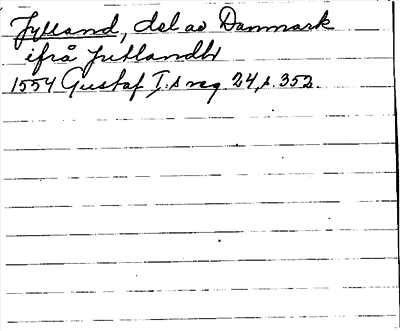 Jylland, del av Danmark
ifrå Jutlandh
1554 Gustaf I:s reg. 24, s. 352.